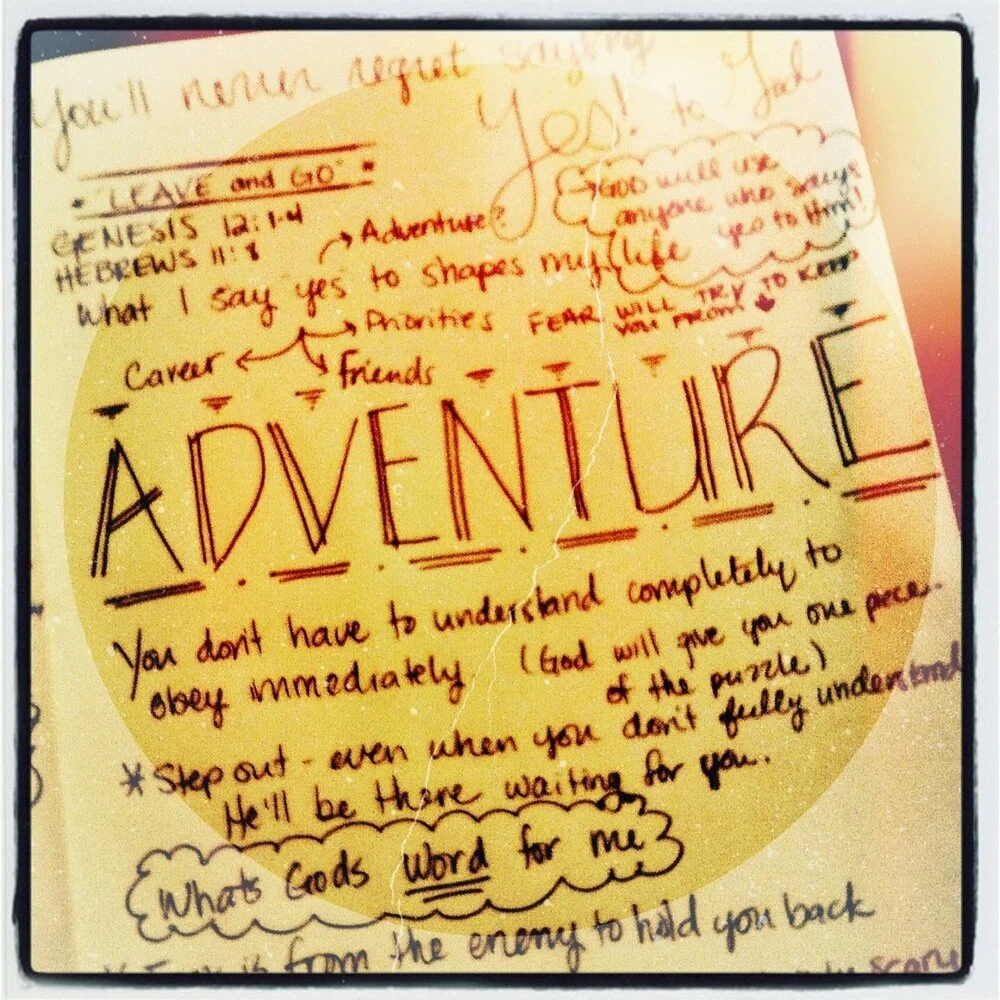 You'll never regret saying
Yes! to God
• "LEAVE and GO" •
GENESIS 12:1-4
HEBREWS 11:8
→ Adventure?
GOD will use
anyone who says
yes to Him!
What I say yes to shapes my life
Career ← → Priorities
friends
FEAR WILL TRY TO KEEP
YOU FROM
ADVENTURE
You don't have to understand completely to
obey immediately. (God will give you one piece
of the puzzle)
* Step out - even when you don't fully understand
He'll be there waiting for you.
Whats Gods Word for me
is from the enemy to hold you back
scary